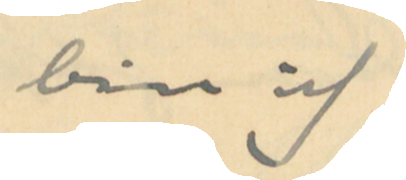 bin ich